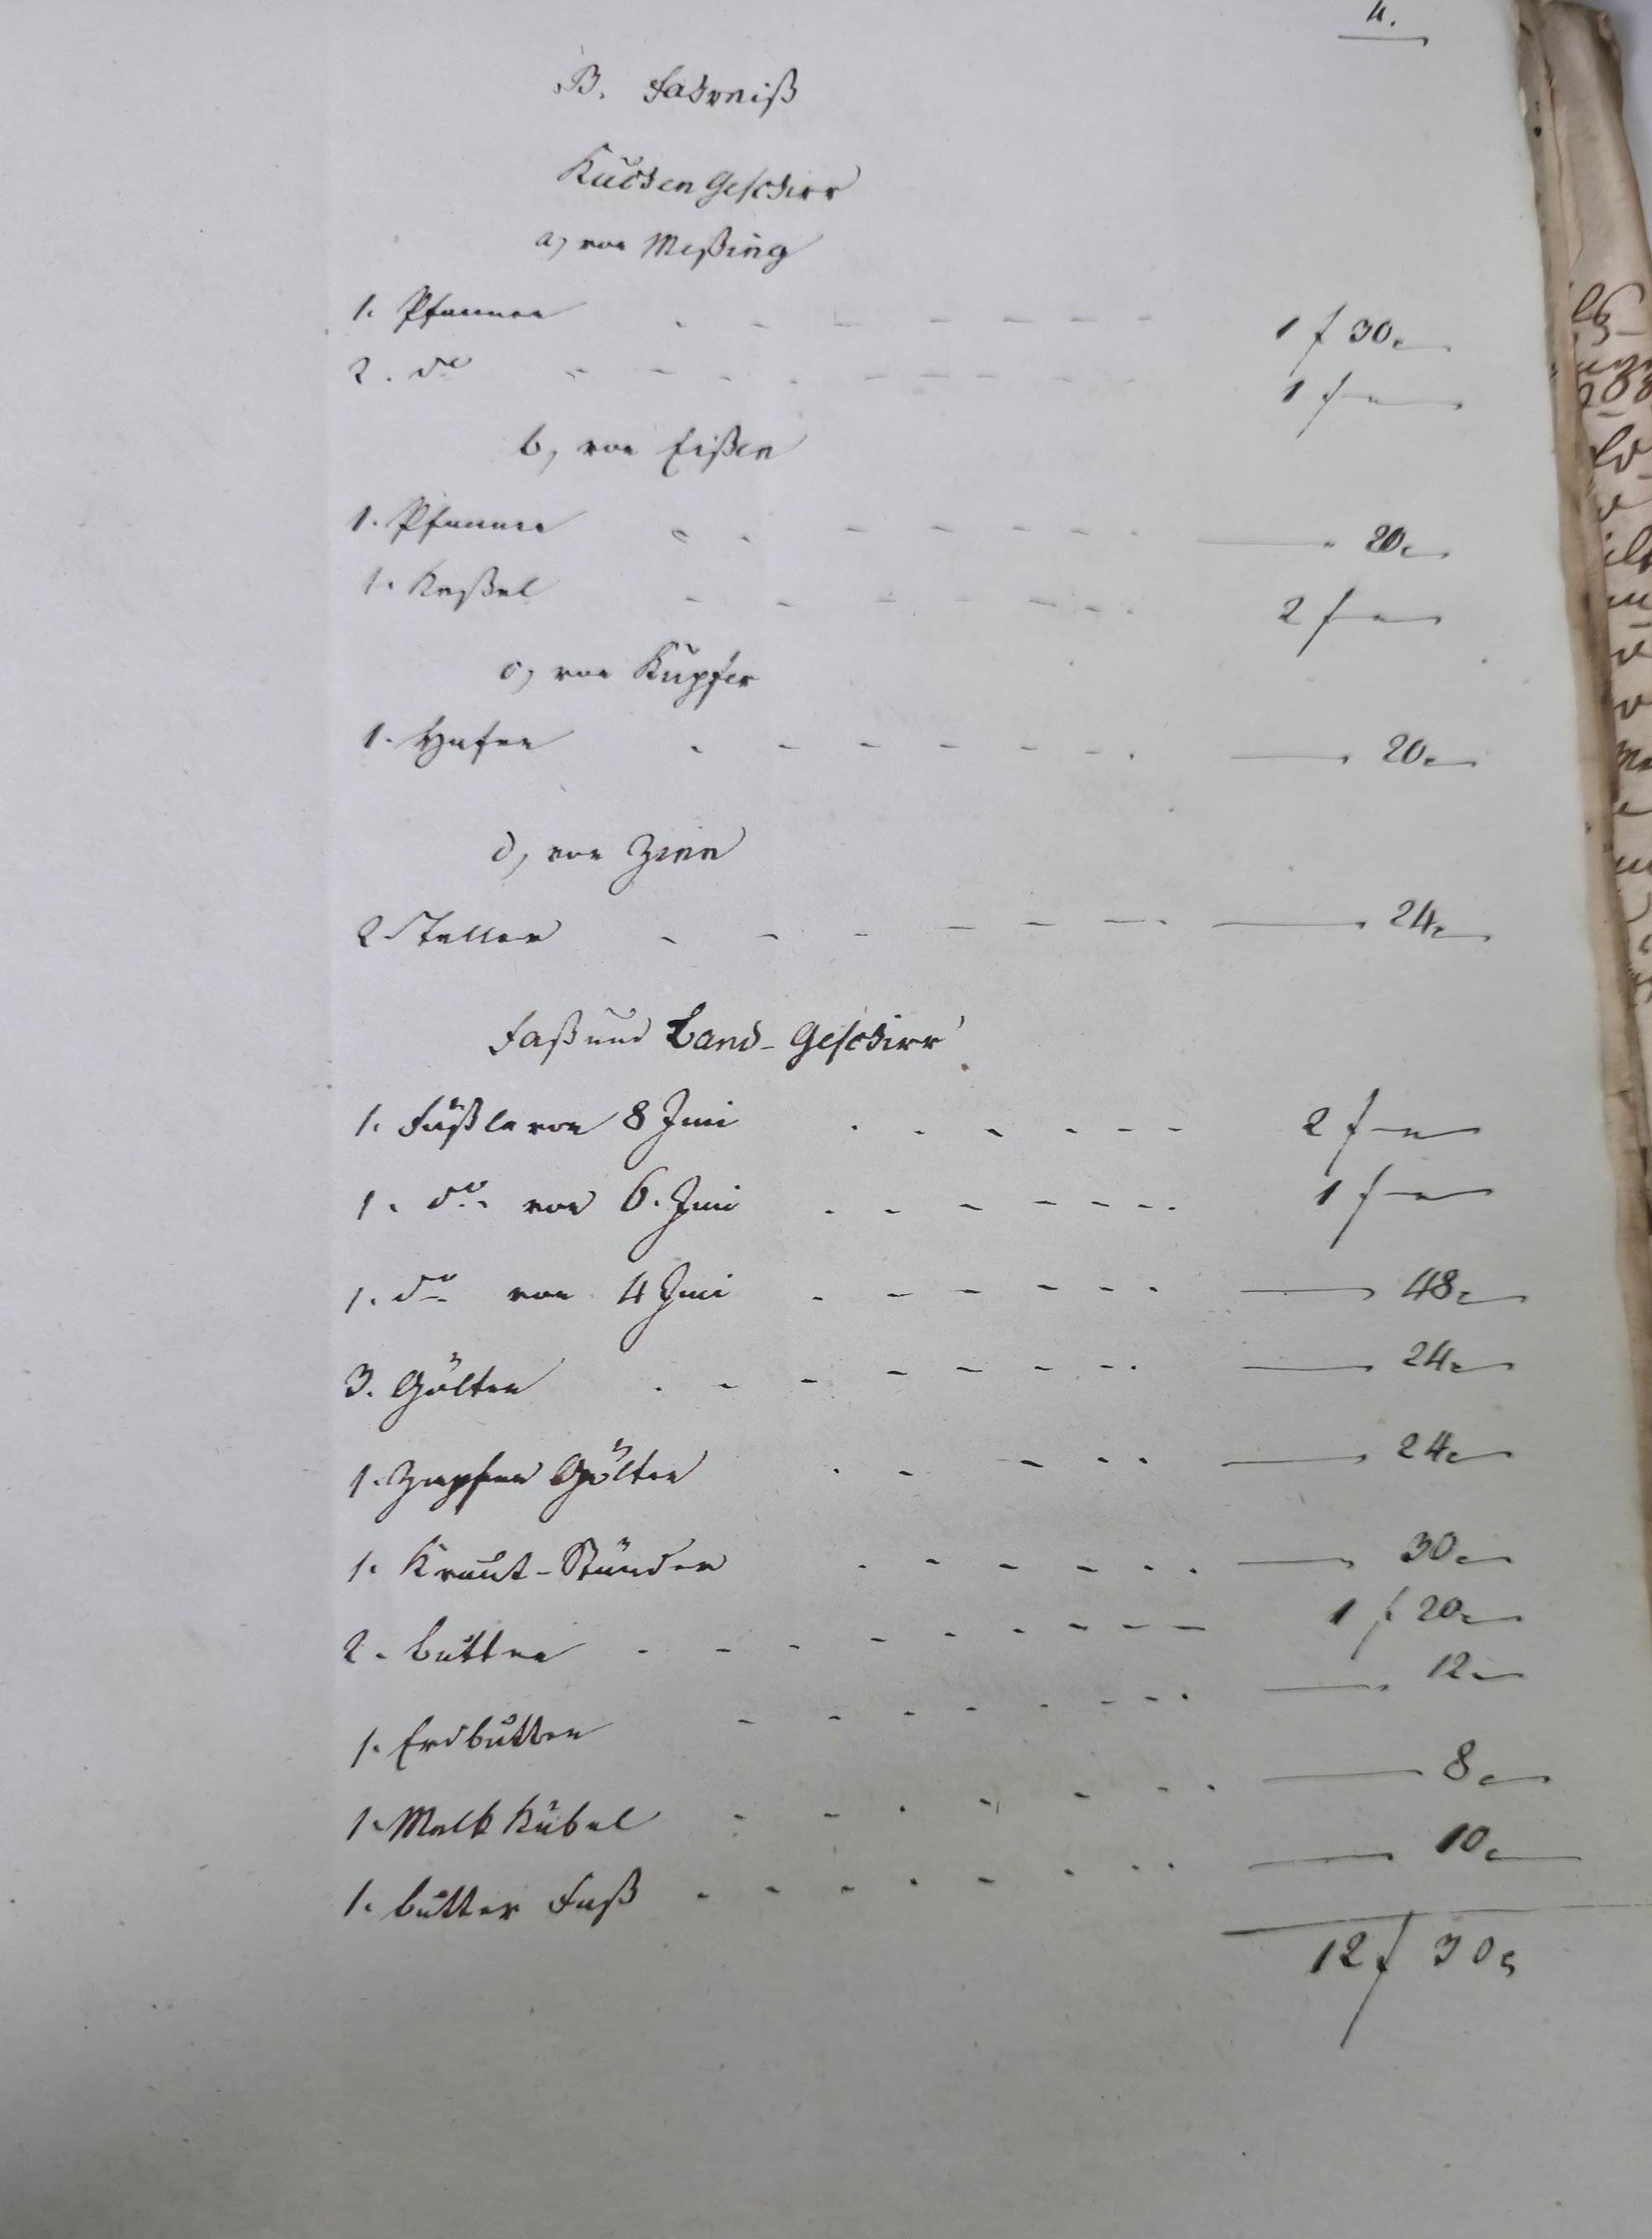 4.
B. Fahrniß
Küchen Geschirr
a, von Meßing
1. Pfannen 1 f 30 x
2. do 1 f —
b, von Eißen
1. Pfannen — 20 x
1. Keßel 2 f —
c, von Kupfer
1. Hafen — 20 x
d, von Zinn
2 Teller — 24 x
Faß und Band-Geschirr
1. Fäßle von 8 Imi 2 f —
1. do. von 6. Imi 1 f —
1. do von 4 Imi — 48 x
3. Gölten — 24 x
1. Zapfen Gölten — 24 x
1. Kraut-Standen — 30 x
2. butten 1 f 20 x
1. Erdbutten — 12 x
1. Melk Kübel — 8 x
1. butter Faß — 10 x
12 f 30 x